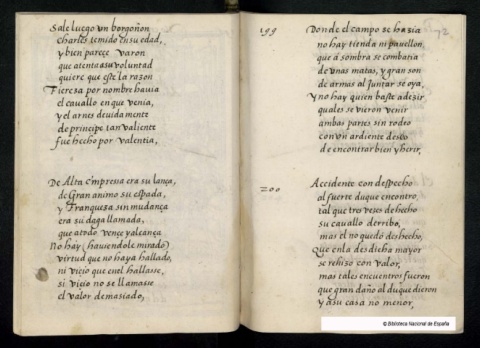 Sale luego vn borgoñon
charles temido en su edad,
y bien pareçe varon
que atento a su voluntad
quiere que este la razon
Fieresa por nombre hauia
el cauallo en que venia,
y el arnes deuidamente
de principe tan valiente
fue hecho por valentia,
De Alta empresa era su lança,
de Gran animo su espada,
y Franquesa sin mudança
era su daga llamada,
que a todo vençe y alcança
No hay (hauiendole mirado)
virtud que no haya hallado,
ni viejo que en el hallasse,
si viejo no se llamasse
el valor demasiado,
199
Donde el campo se hasia
no hay tienda ni pauellon,
que a sombra se combatia
de vnas matas, y gran son
de armas al juntar se oya,
Y no hay quien baste a desir
quales se vieron venir
ambas partes sin rodeo
con vn ardiente deseo
de encontrar bien y herir,
200
Accidente con despecho
al fuerte duque encontro,
tal que tres veses de hecho
su cauallo derribo,
mas el no quedó deshecho,
Que en la desdicha mayor
se rehiso con valor,
mas tales encuentros fueron
que gran daño al duque dieron
y a su casa no menor,
72
© Biblioteca Nacional de España